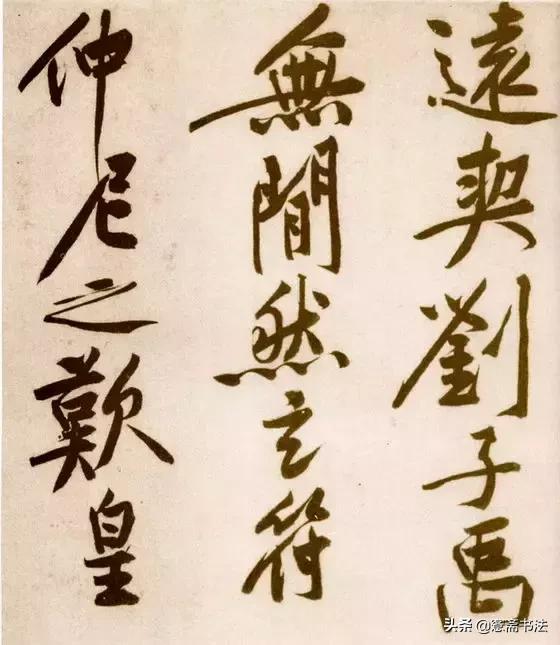 遠契劉子禹
無閒然玄符
仲尼之歎皇
头条 @憲斋书法